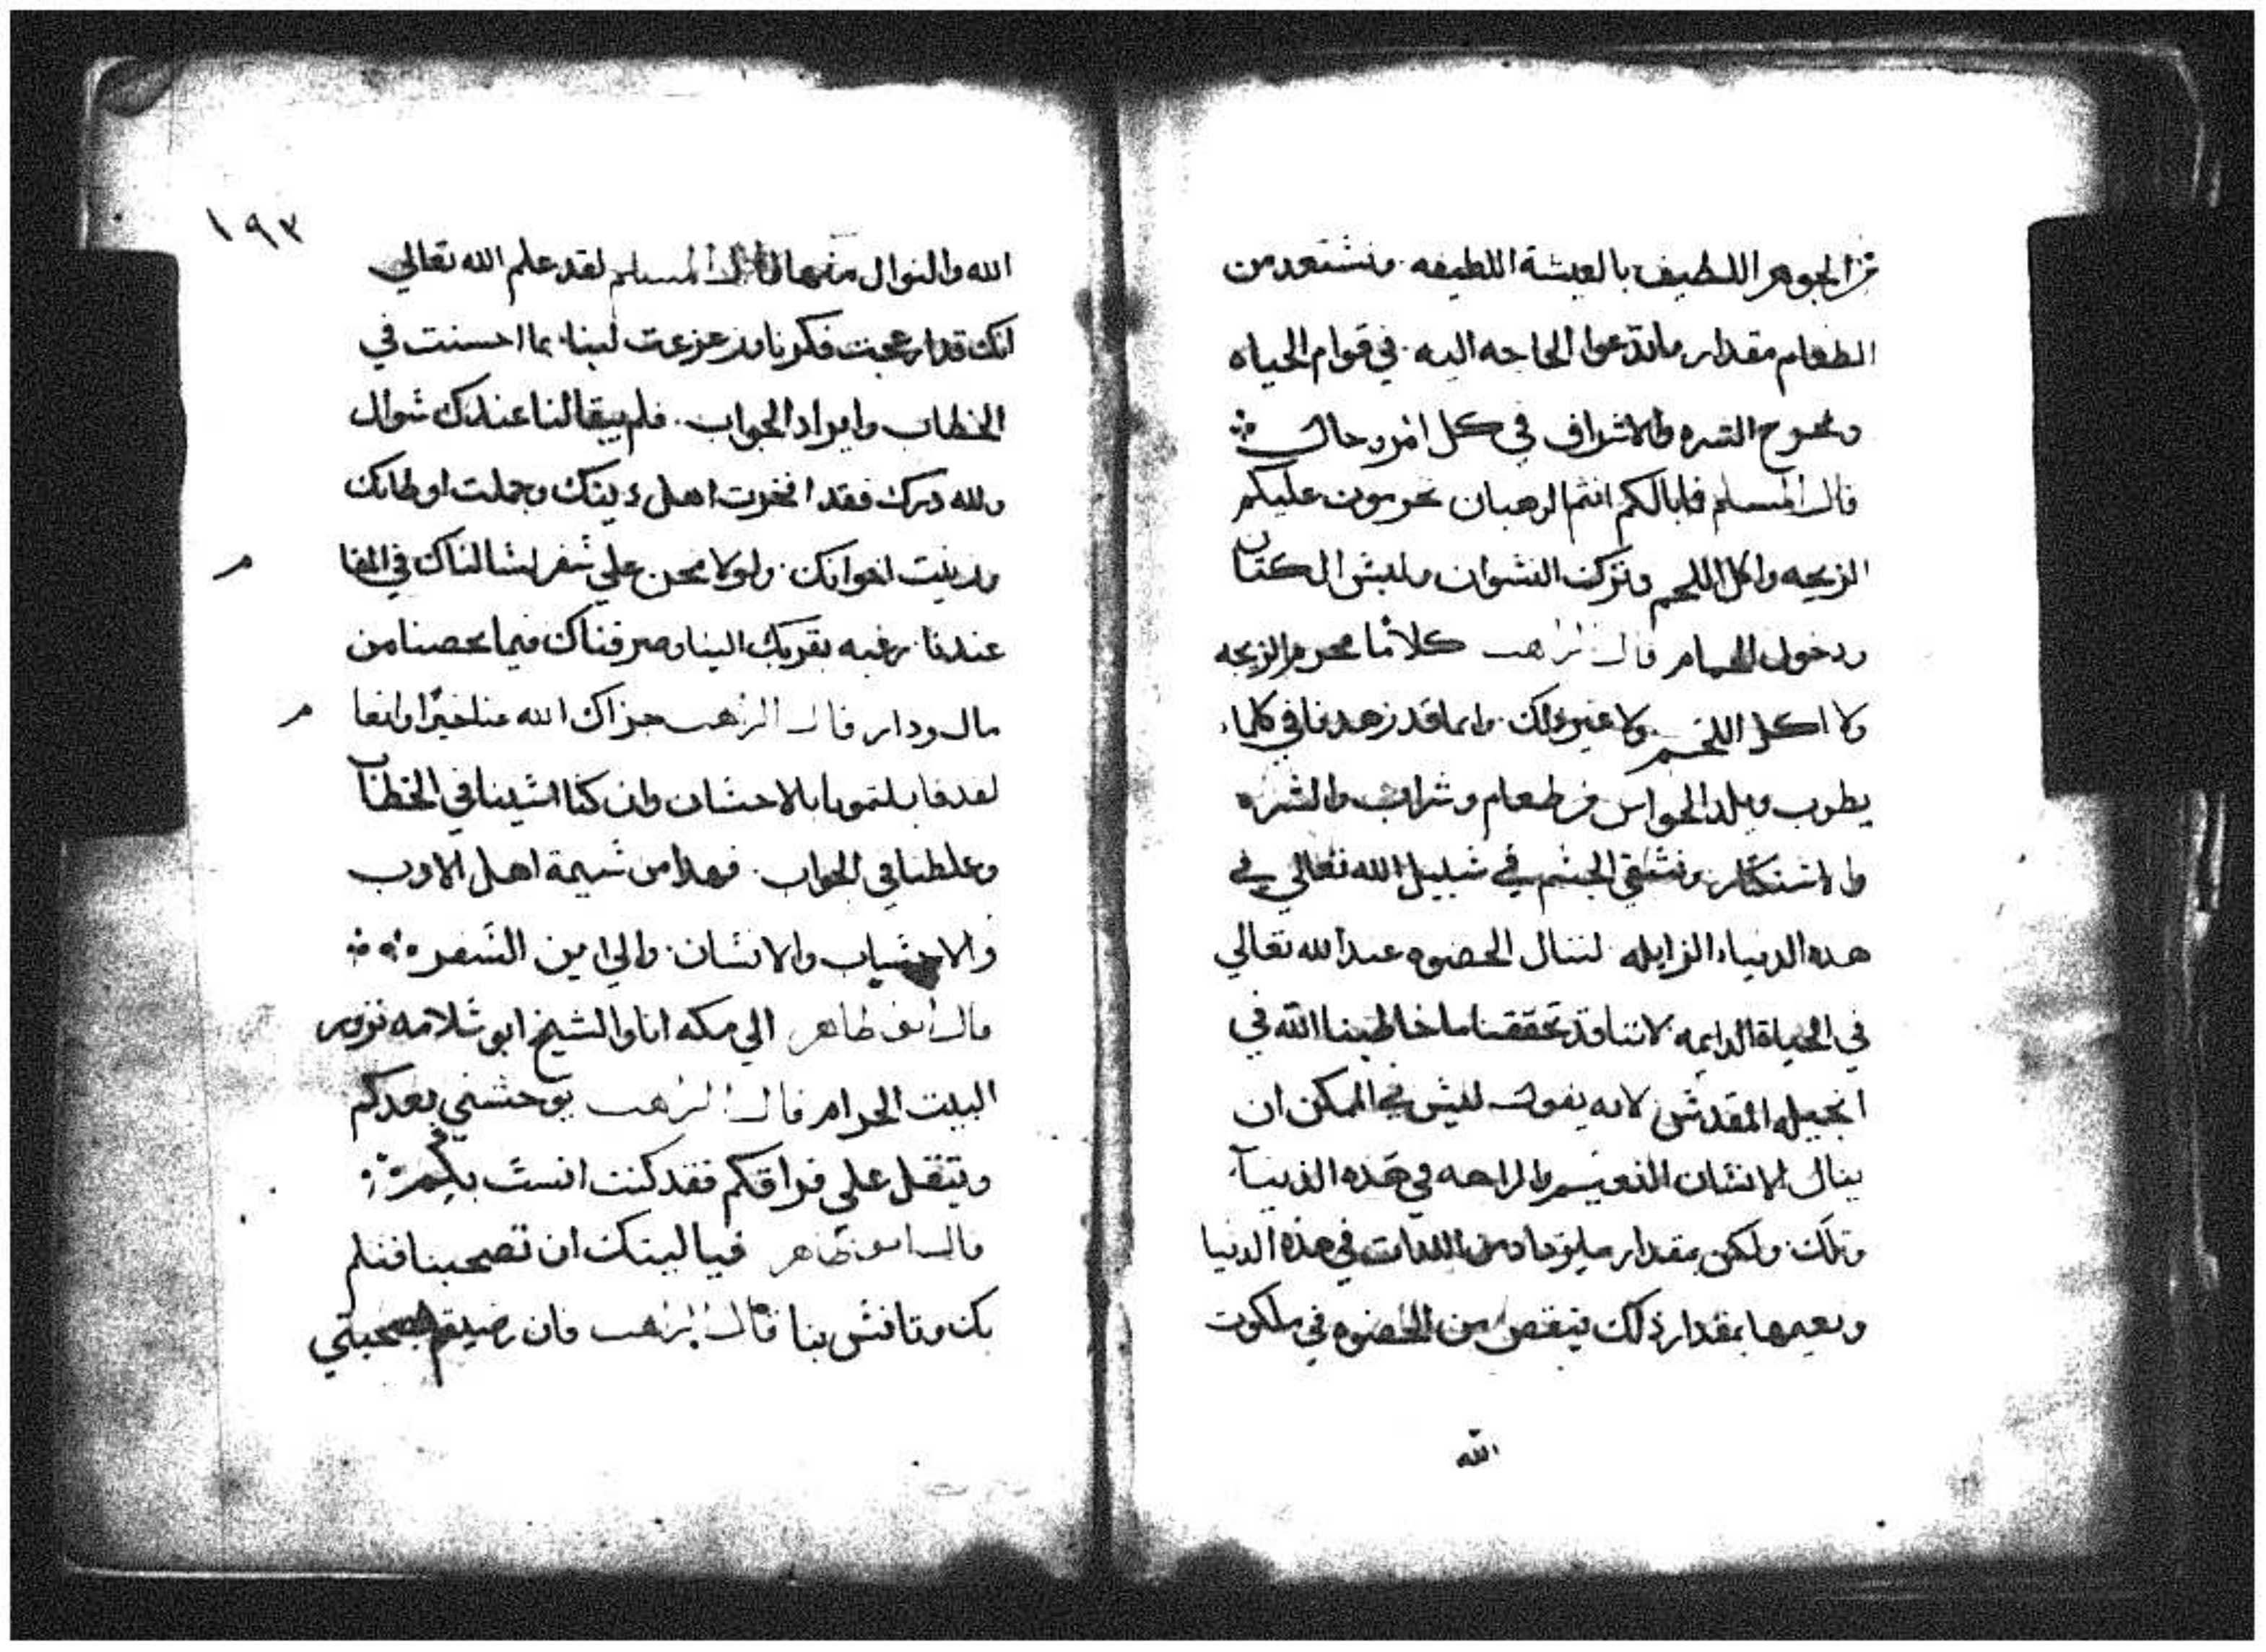 من الجوهر اللطيف بالعيشة اللطيفه ونشتعد من
الطعام مقدار ماتدعوا الحاجه اليه في قوام الحياه
الشره والاشراف في كل امر وحال
قال المسلم فما بالكم انتم الرهبان تحرمون عليكم
الزيجه واكل اللحم وتركت النشوان ولبش الكتان
ودخول الحمام قال الراهب كلا ما نحرم الزيجه
ولا اكل اللحم ولا غير ذلك وانما قد زهدنا في كلما
يطرب ويلد الحواس من طعام وشراب والشره
والاشتكثار ونشقي الجشم في شبيل الله تعالي في
هده الدنياء الزايله لننال الحضوه عند الله تعالي
في الحياة الدايمه لاننا قد تحققنا ما خاطبنا الله في
انجيله المقدش لانه يقول ليش من الممكن ان
ينال الانشان النعيم والراحه في هذه الدنيا
وتلك ولكن بمقدار ما يزداد من اللدات في هذه الدنيا
ونعيمها بمقدار ذلك ينقص من الحضوه في ملكوت
الله
١٩٣
الله والنوال منها قال المسلم لقد علم الله تعالي
انك قد ازعجت فكرنا وزعزعت لبنا بما احسنت في
الخطاب وايراد الجواب فلم يبقا لنا عندك شوال
ولله درك فقد افخرت اهل دينك وجملت اوطانك
وزينت اخوانك ولولا نحن علي شفر لشالناك في المقا
م
عندنا رغبه بقربك الينا وصرفناك فيما يخصنا من
مال ودار قال الراهب جزاك الله عنا خيرا وانعا
م
لقد قابلتمونا بالاحشان وان كنا اشينا في الخطاب
وغلطنا في الجواب فهدا من شيمة اهل الادب
والاحشاب والانشان والي اين الشفر
قال ابو ظاهر الي مكه انا والشيخ ابو شلامه نزور
البيت الحرام قال الراهب يوحشني بعدكم
ويتقل علي فراقكم فقد كنت انست بكم
قال ابو ظاهر فيا ليتك ان تصحبنا فنلم
بك وتانش بنا قال الراهب فان رضيتم بصحبتي